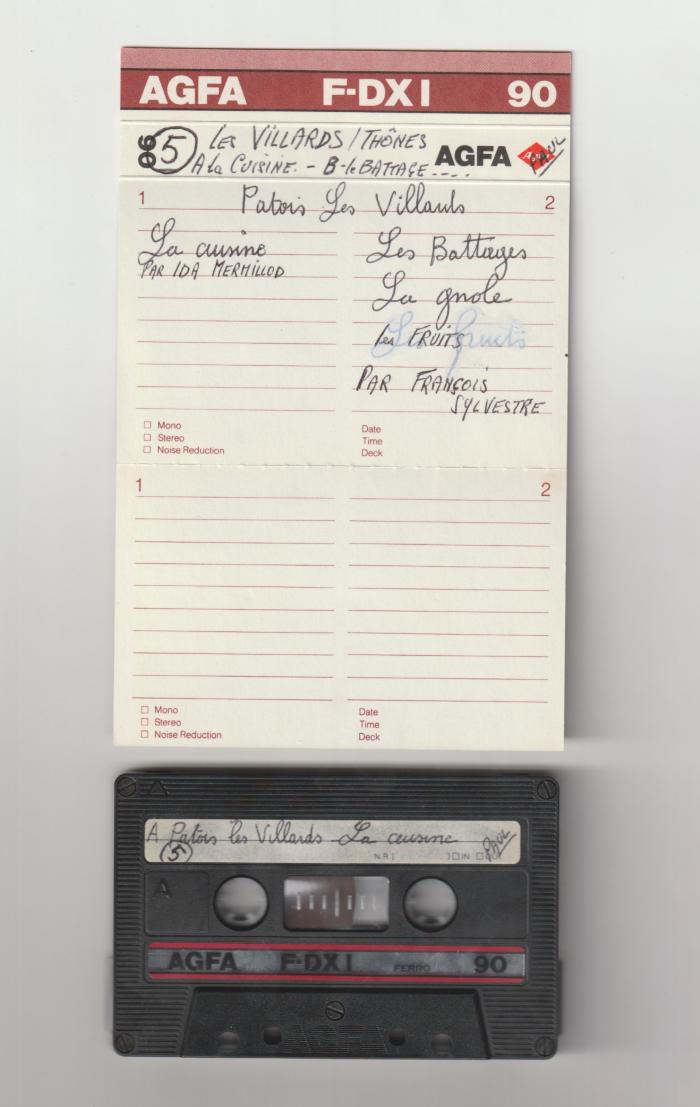 AGFA F-DX I 90
90 5 LES VILLARDS / THÔNES AGFA PAUL
A la CUISINE. - B - le BATTAGE ....
1 Patois Les Villards 2
La cuisine
PAR IDA MERMILLOD
Les Battages
La gnole
les FRUITS
PAR FRANÇOIS
SYLVESTRE
Mono
Stereo
Noise Reduction
Date
Time
Deck
1 2
Mono
Stereo
Noise Reduction
Date
Time
Deck
A Patois les Villards La cuisine PAUL
5
N.R.
IN
A
AGFA F-DX I FERRO 90
AGFA